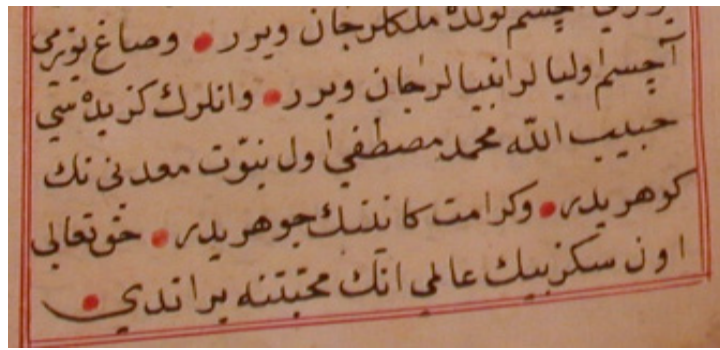 آچسم لولده ملكلر جان ويرر • وصاغ يوزمي
آچسم اوليا لر انبيا لر جان ويرر • وانلرك كزيده سي
حبيب الله محمد مصطفي اول نبوّت معدنى نك
كوهريدر • وكرامت كانينك جوهريدر • حق تعالى
اون سكز بيك عالمي انك محبّتنه يراتدي •